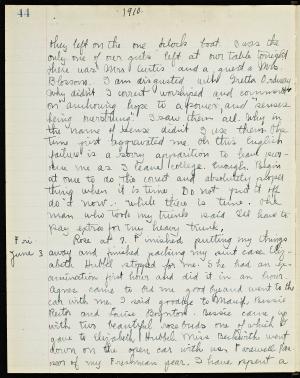 44
1910.
they left on the one o'clock boat. I was the
only one of our girls left at our table tonight
there was Mrs Curtis and a guest & Mrs
Blossom. I am disgusted with Gretta Ordway
Why didn't I correct "worshiped and
on anchoring hope to a power", and "senses
being overthrong". I saw them all. Why in
the name of sense didn't I use them. The
time just aggravated me. Oh this English
failure is a sorry apparition to haunt
me as I leave college. Enough. Begin
at once to do the correct and absolutely proper
thing when it is time. Do not put it off
do it now. While there is time. The
man who took my trunks said I'll have to
pay extra for my heavy trunk.
Fri
Rose at 7. Finished putting my things
June 3
away and finished packing my suit case.
Hubbel stopped for me. She had an
examination first hour and did it in an hour.
Agnes came to bid me goodbye and went to the
car with me. I said goodbye to Maud, Bessie
Reter and Louise Boynton. Bessie came up
with two beautiful rosebuds one of which I
gave to Elizabeth Hubbel. Miss Beckwith went
down on the open car with us. Farewell
of my Freshman year. I have spent a